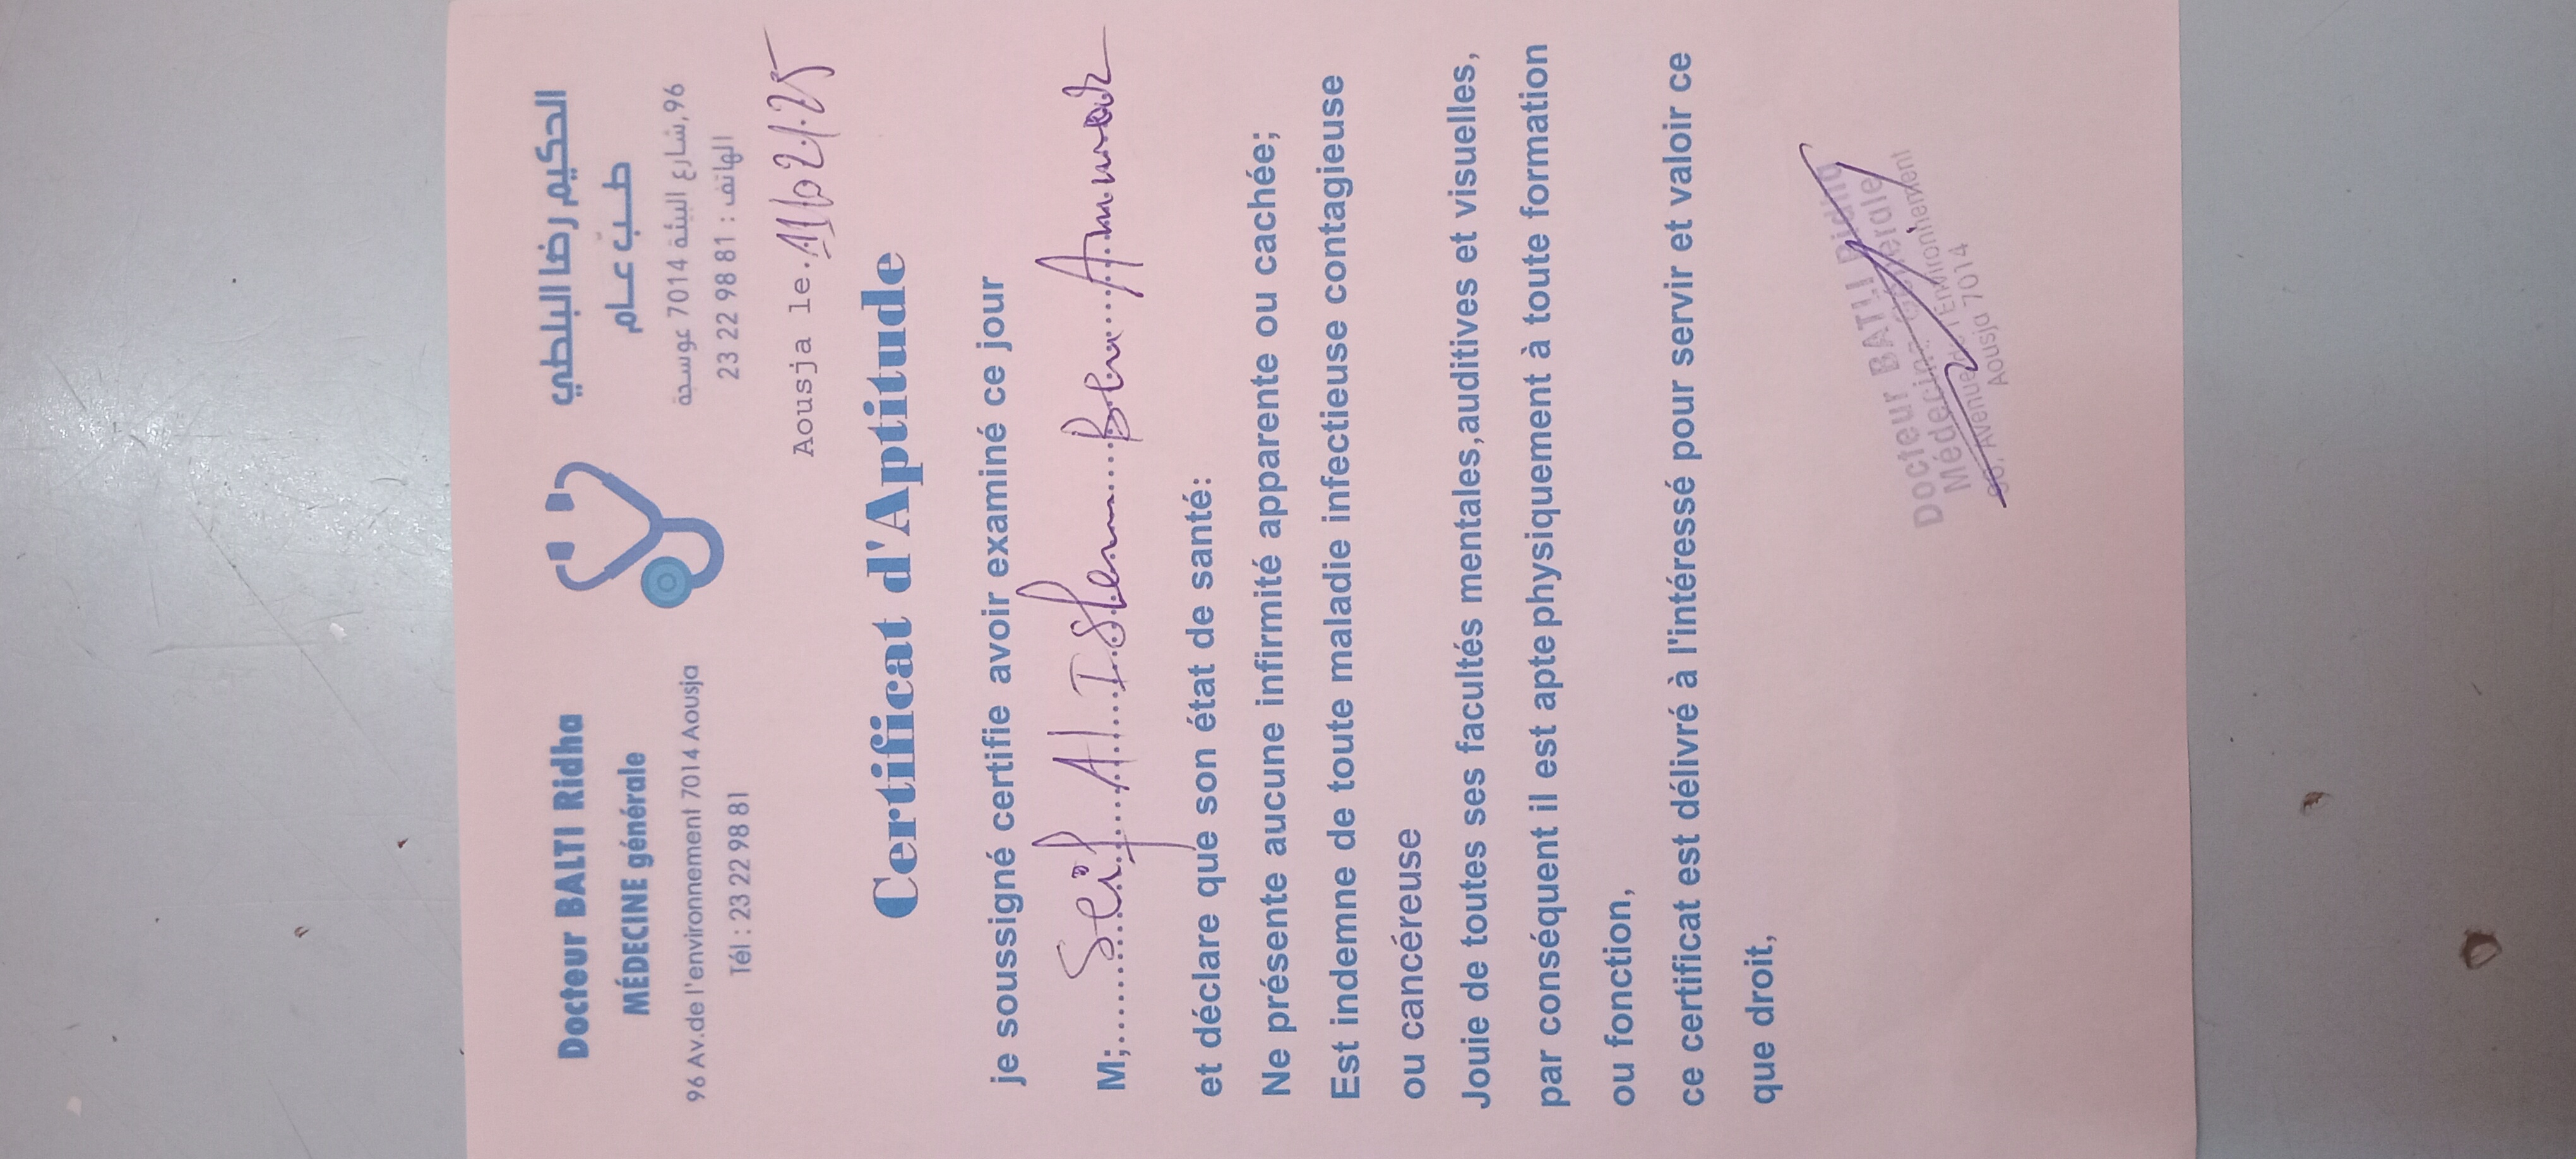 Docteur BALTI Ridha
MÉDECINE générale
96 Av.de l'environnement 7014 Aousja
Tél : 23 22 98 81
الحكيم رضا البلطي
طب عام
96,شارع البيئة 7014 عوسجة
الهاتف : 81 98 22 23
Aousja le.11/02/.25
Certificat d'Aptitude
je soussigné certifie avoir examiné ce jour
M;....Seif Al Islem Ben Ammar
et déclare que son état de santé:
Ne présente aucune infirmité apparente ou cachée;
Est indemne de toute maladie infectieuse contagieuse
ou cancéreuse
Jouie de toutes ses facultés mentales,auditives et visuelles,
par conséquent il est apte physiquement à toute formation
ou fonction,
ce certificat est délivré à l'intéressé pour servir et valoir ce
que droit,
Docteur BALTI Ridha
Médecine Générale
96, Avenue de l'Environnement
Aousja 7014